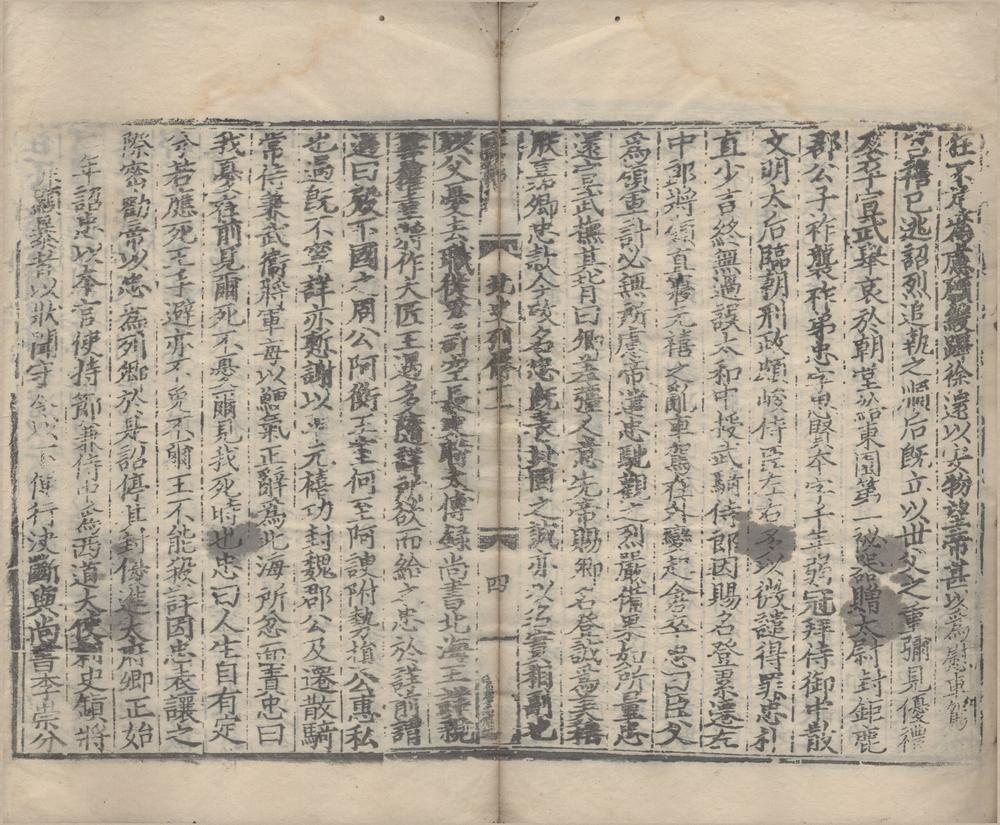 在下定齋應頤緩步徐還以安物望帝甚以為慰車駕
宮禧已逃詔烈追執之順后既立以世父之重彌見優禮
卒宣武舉哀於朝堂給東園第一秘器贈太尉封鉅鹿
郡公子祚襲祚弟忠字思賢本字千年弱冠拜侍御中散
文明太后臨朝刑政頗峻侍臣左右多以微譴得罪忠朴
直少言終無過誤太和中授武騎侍郎因賜名登累遷左
中郎將領直寢元禧之亂車駕在外變起倉卒忠曰臣父
為領軍計必無所慮帝遣忠馳觀之烈嚴備果如所量忠
還宣武撫其背曰卿差彊人意先帝賜卿名登誠為美稱
朕嘉卿忠款今改名忠既表貞固之誠亦以名實相副也
以父憂去職後為司空長史時太傅錄尚書北海王詳親
尊權重將作大匠王遇多隨詳所欲而給之忠於詳前謂
遇曰殿下國之周公阿衡王室何至阿諛附勢損公惠私
也遇既不寧詳亦慙謝以平元禧功封魏郡公及遷散騎
常侍兼武衛將軍每以鯁氣正辭為北海所忽面責忠曰
我憂在前見爾死不憂爾見我死時也忠曰人生自有定
分若應死王手避亦不免不爾王不能殺詳因忠表讓之
際密勸帝以忠為列卿於是詔停其封優進太府卿正始
年詔忠以本言使持節兼侍中為西道大使刺史鎮將
顯暴者以狀聞守令以下便行決斷與尚書李崇分
北史列傳十一
四